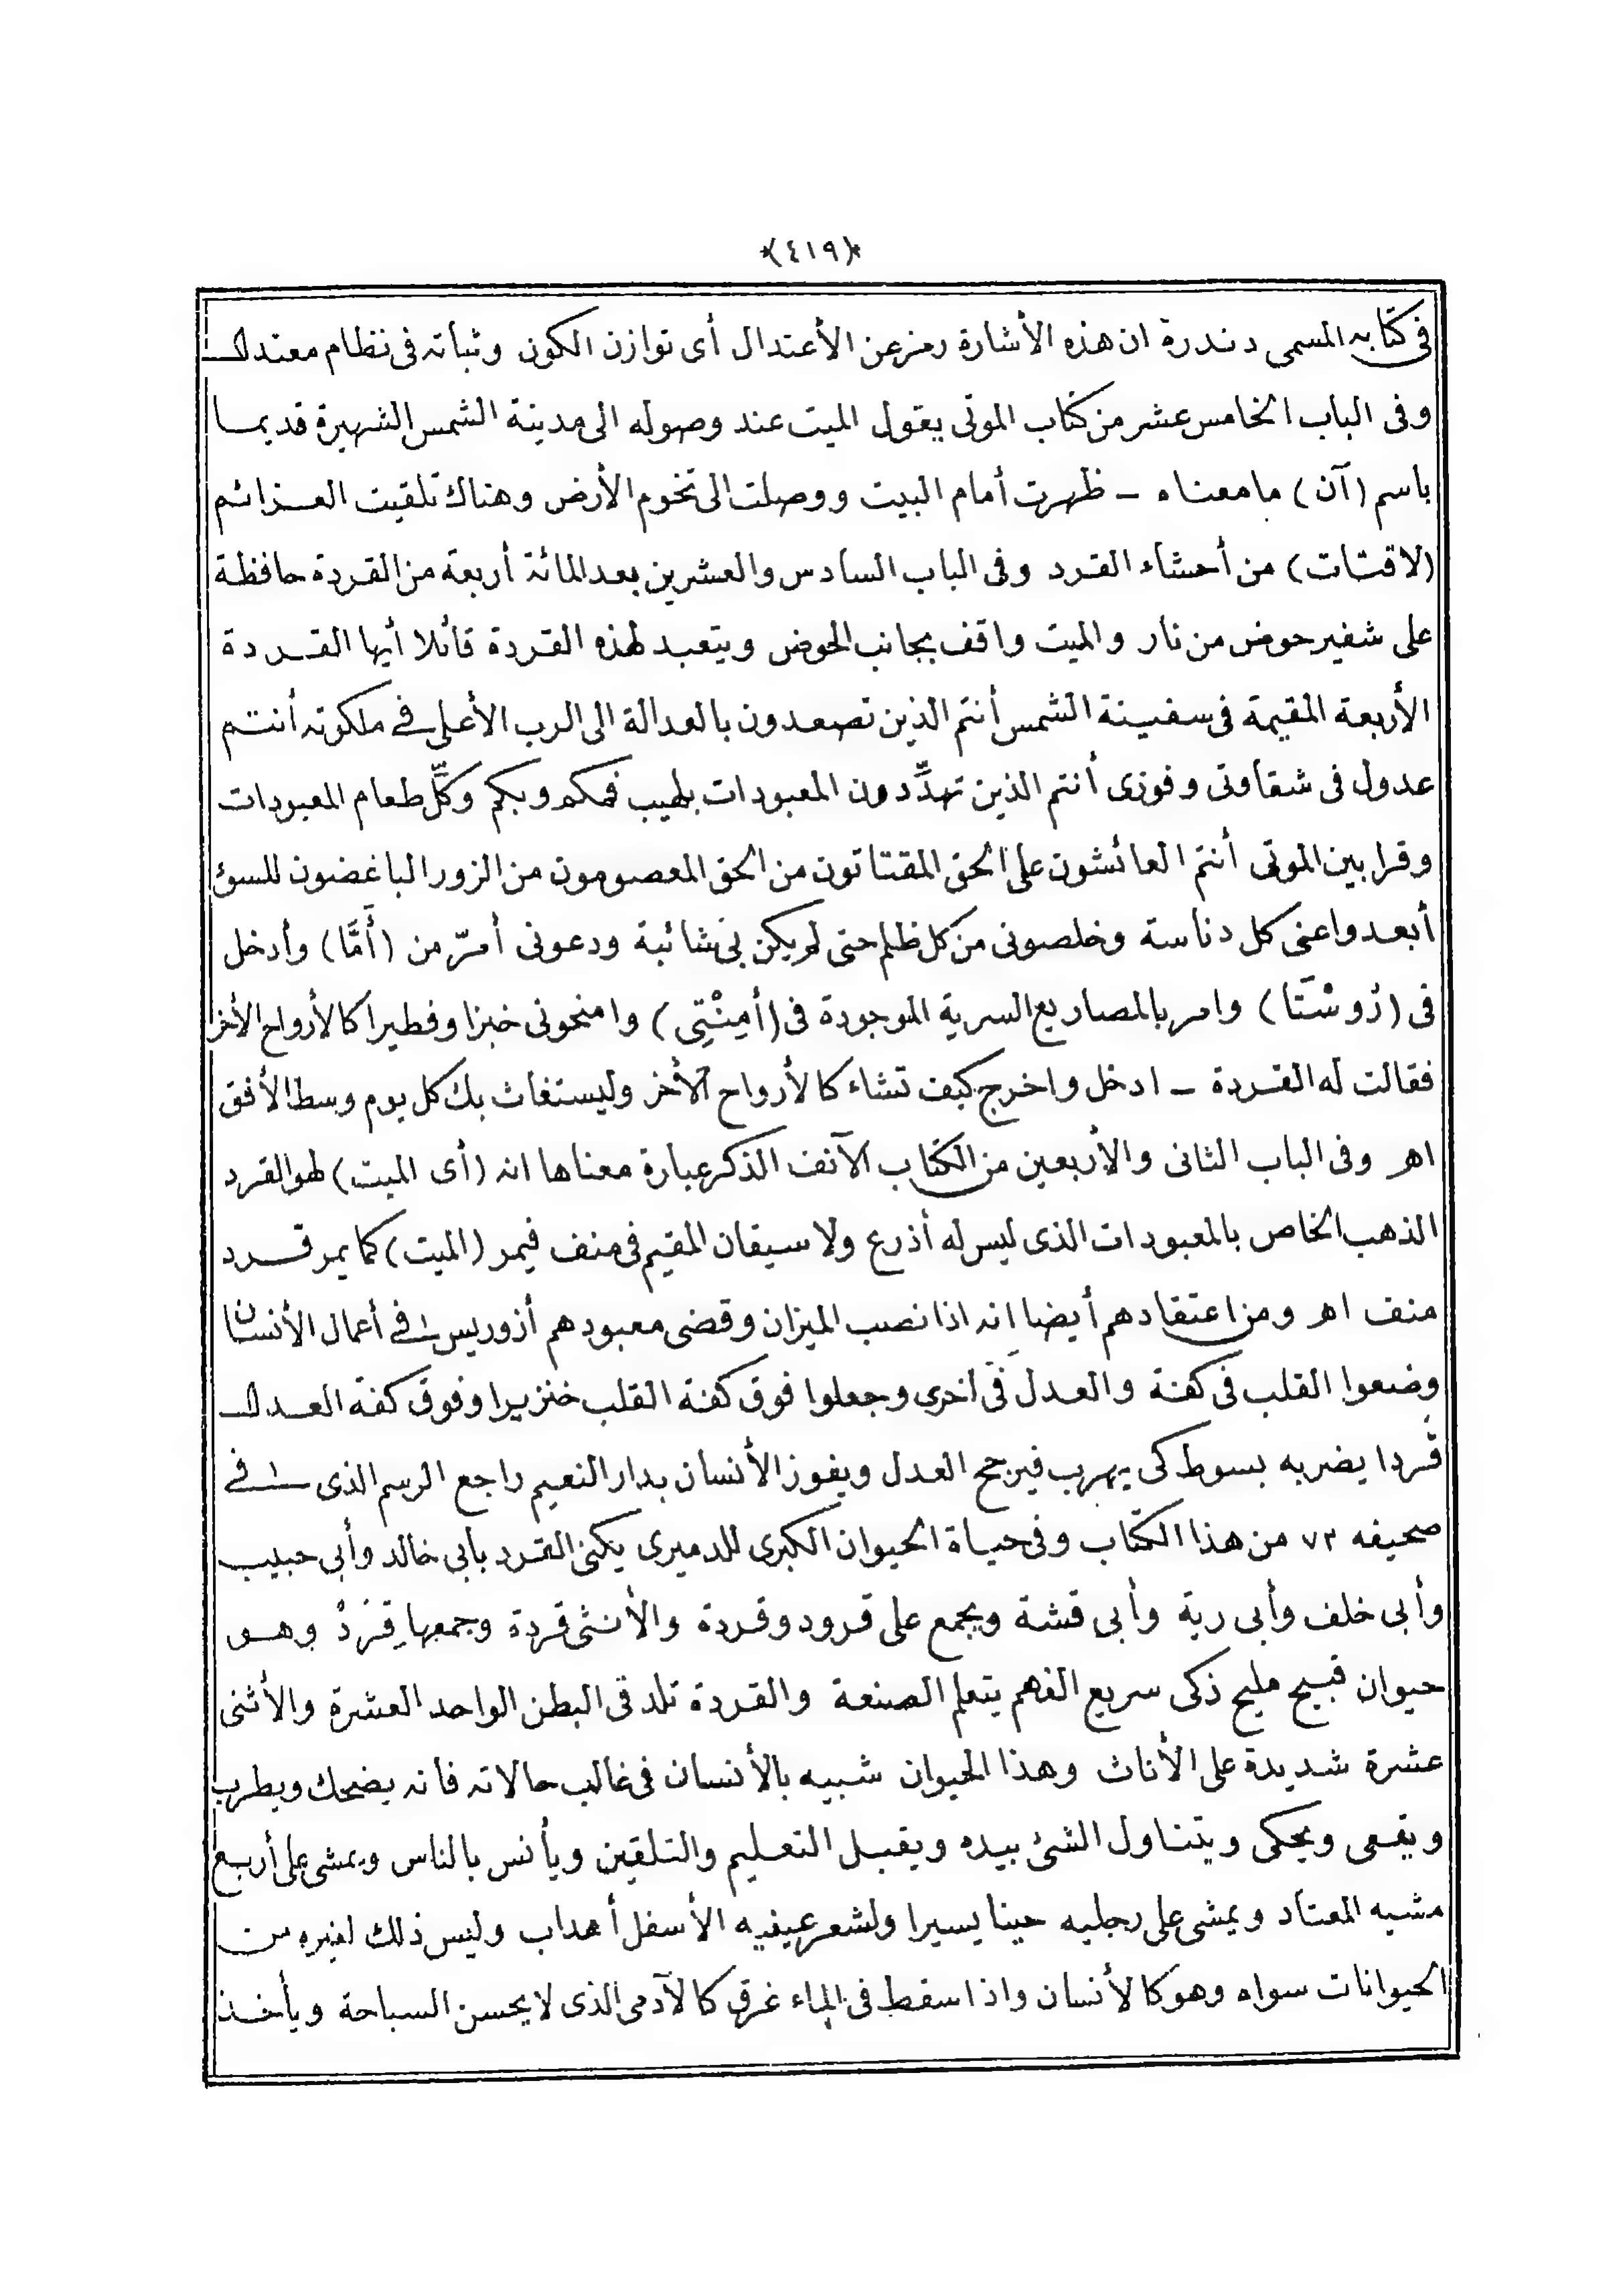 *(٤١٩)*
فى كتابه المسمى دندرة ان هذه الأشارة رمز عن الأعتدال أى توازن الكون وثباته فى نظام معتدل
وفى الباب الخامس عشر من كتاب الموتى يقول الميت عند وصوله الى مدينة الشمس الشهيرة قديما
باسم (آن) ما معناه ـ ظهرت أمام البيت ووصلت الى تخوم الأرض وهناك تلقيت العزائم
(لاقتات) من أحشاء القرد وفى الباب السادس والعشرين بعد المائة أربعة من القردة حافظة
على شفير حوض من نار والميت واقف بجانب الحوض ويتعبد لهذه القردة قائلا أيها القردة
الأربعة المقيمة فى سفينة الشمس أنتم الذين تصعدون بالعدالة الى الرب الأعلى فى ملكوته أنتم
عدول فى شقاوتى وفوزى أنتم الذين تهدّدون المعبودات بلهيب فمكم وبكم وكلّ طعام المعبودات
وقرابين الموتى أنتم العائشون على الحق المقتاتون من الحق المعصومون من الزور الباغضون للسوء
أبعدوا عنى كل دناسة وخلصونى من كل ظلم حتى لم يكن بى شائبة ودعونى أمرّ من (أَمَّا) وأدخل
فى (رُوسْتَا) وامر بالمصاريع السرية الموجودة فى (أمِنْتِى) وامنحونى خبزا وفطيرا كالأرواح الأخر
فقالت له القردة ـ ادخل واخرج كيف تشاء كالأرواح الأخر وليستغاث بك كل يوم وسط الأفق
اهـ وفى الباب الثانى والأربعين من الكتاب الآنف الذكر عبارة معناها انه (أى الميت) لهو القرد
الذهب الخاص بالمعبودات الذى ليس له أذرع ولا سيقان المقيم فى منف فيمر (الميت) كما يمر قرد
منف اهـ ومن اعتقادهم أيضا انه اذا نصب الميزان وقضى معبودهم أزوريس فى أعمال الأنسان
وضعوا القلب فى كفة والعدل فى أخرى وجعلوا فوق كفة القلب خنزيرا وفوق كفة العدل
قردا يضربه بسوط كى يهرب فيرجح العدل ويفوز الأنسان بدار النعيم راجع الرسم الذى فى
صحيفه ٧٣ من هذا الكتاب وفى حياة الحيوان الكبرى للدميرى يكنى القرد بأبى خالد وأبى حبيب
وأبى خلف وأبى ربة وأبى قشة ويجمع على قرود وقردة والأنثى قردة وجمعها قِرَدْ وهو
حيوان قبيح مليح ذكى سريع الفهم يتعلم الصنعة والقردة تلد فى البطن الواحد العشرة والأثنى
عشرة شديدة على الأناث وهذا الحيوان شبيه بالأنسان فى غالب حالاته فانه يضحك ويطرب
ويقعى ويحكى ويتناول الشئ بيده ويقبل التعليم والتلقين ويأنس بالناس ويمشى على أربع
مشيه المعتاد ويمشى على رجليه حينا يسيرا ولشعر عينيه الأسفل أهداب وليس ذلك لغيره من
الحيوانات سواه وهو كالأنسان واذا سقط فى الماء غرق كالآدمى الذى لا يحسن السباحة ويأخذ